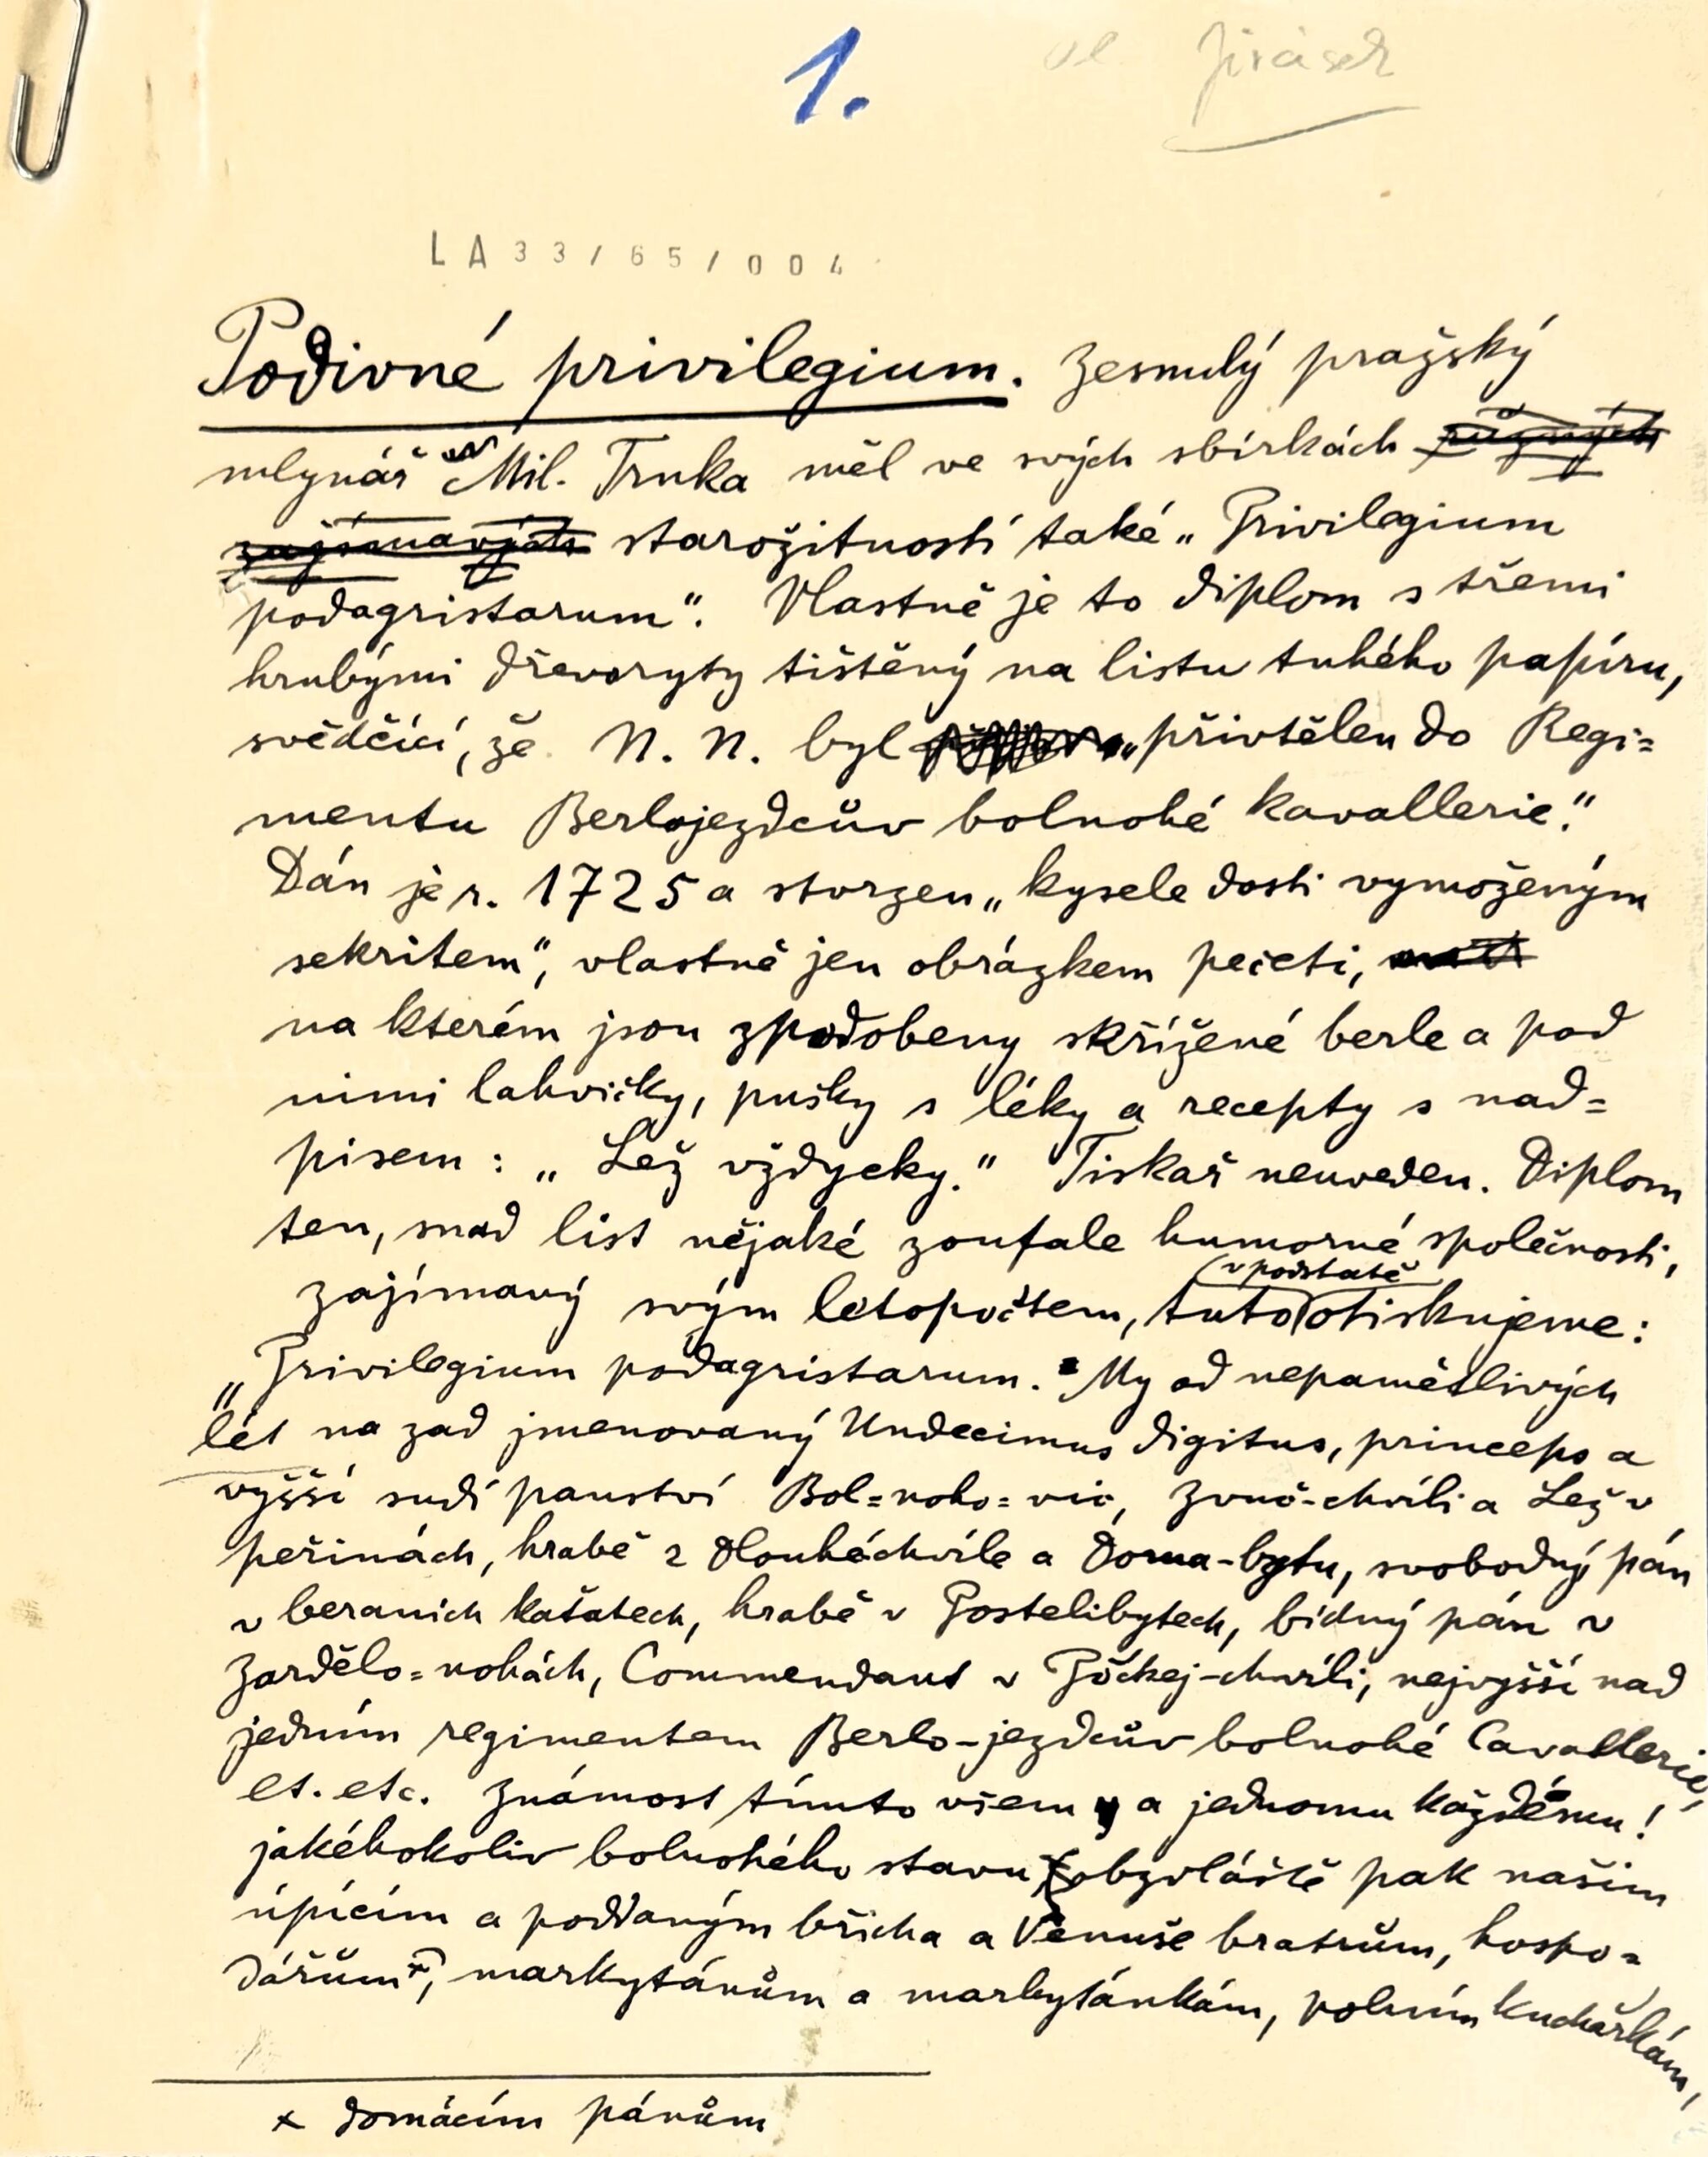 1.
Jirásek
LA 33/65/004
Podivné privilegium. Zesnulý pražský
mlynář Mil. Trnka měl ve svých sbírkách různých
zajímavých starožitností také „Privilegium
podagristarum“. Vlastně je to diplom s třemi
hrubými dřevoryty tištěný na listu tuhého papíru,
svědčící, že N. N. byl „přivtělen do Regi=
mentu Berlojezdcův bolnohé kavallerie.“
Dán je r. 1725 a stvrzen „kysele dosti vymoženým
sekritem“, vlastně jen obrázkem pečeti,
na kterém jsou zpodobeny skřížené berle a pod
nimi lahvičky, pušky s léky a recepty s nad=
pisem: „Lež vždycky.“ Tiskař neuveden. Diplom
ten, snad list nějaké zoufale humorné společnosti,
zajímavý svým letopočtem, tuto v podstatě otiskujeme:
„Privilegium podagristarum. My od nepamětlivých
lét na zad jmenovaný Undecimus digitus, princeps a
vyšší sudí panství Bol=noho=vic, Zvuč-chvíli a Lež v
peřinách, hrabě z Dlouhéchvíle a Doma-bytu, svobodný pán
v beraních kašatech, hrabě v Postelibytech, bídný pán v
Zardělo=nohách, Commendant v Póckej-chvíli, nejvyšší nad
jedním regimentem Berlo-jezdcův bolnohé Cavallerie,
et. etc. Známost tímto všem y a jednomu každému!
jakéhokoliv bolnohého stavu, obzvláště pak našim
úpícím a poddaným břicha a Venuše bratrům, hospo=
dářům x), markytánům a markytánkám, polním kuchařkám,
x domácím pánům